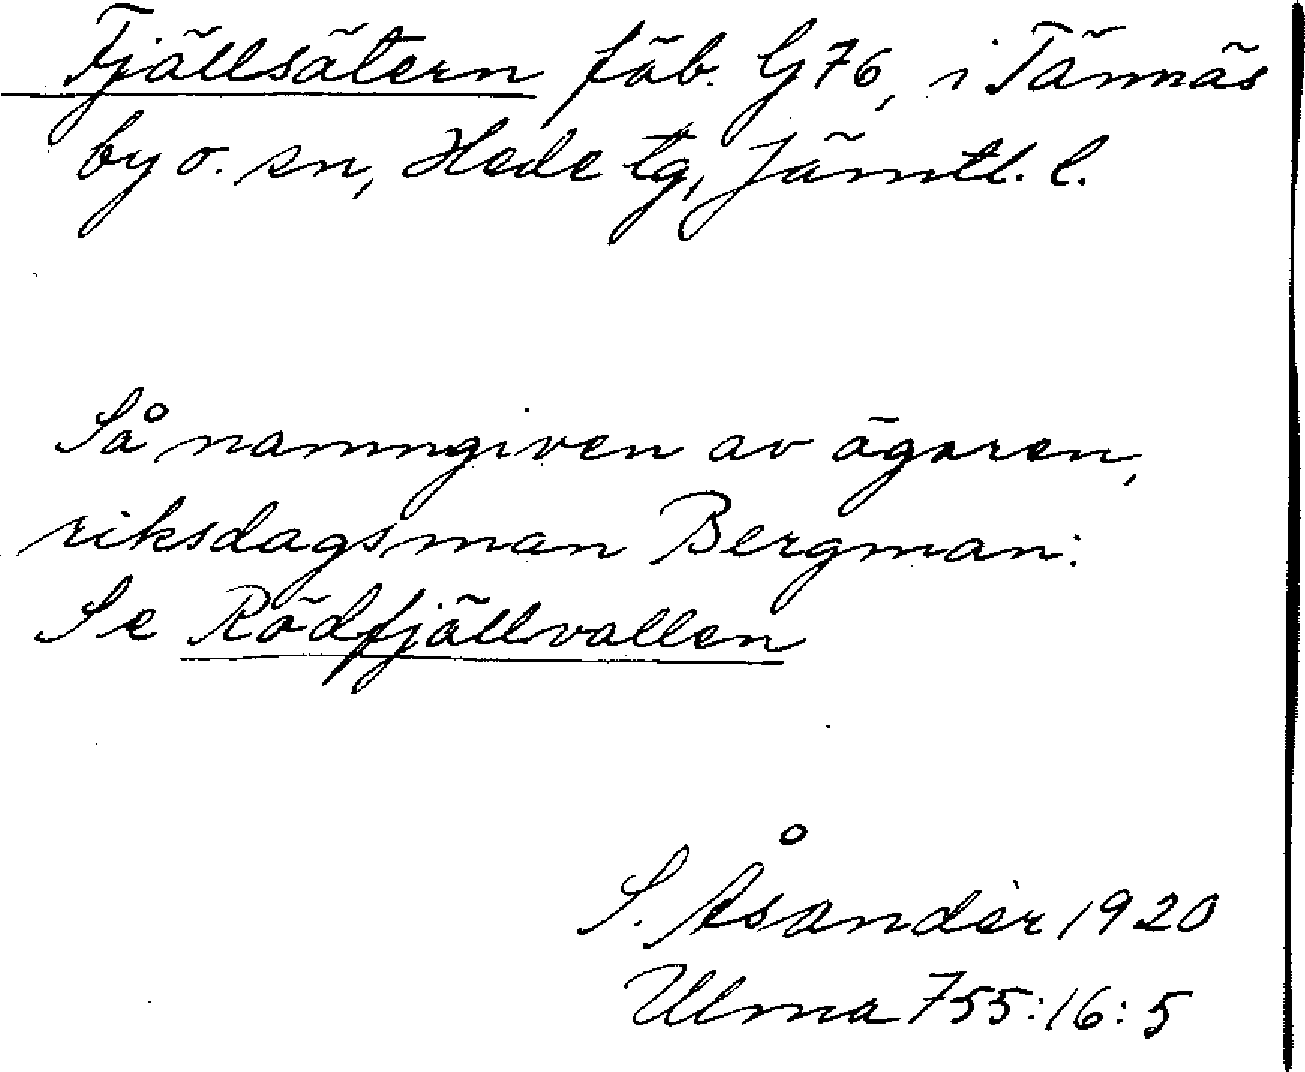 Fjällsätern fäb. G76, i Tännäs
by o. sn, Hede tg, Jämtl. l.
Så namngiven av ägaren,
riksdagsman Bergman.
Se Rödfjällvallen
S. Åsandèr 1920
Ulma 755:16:5